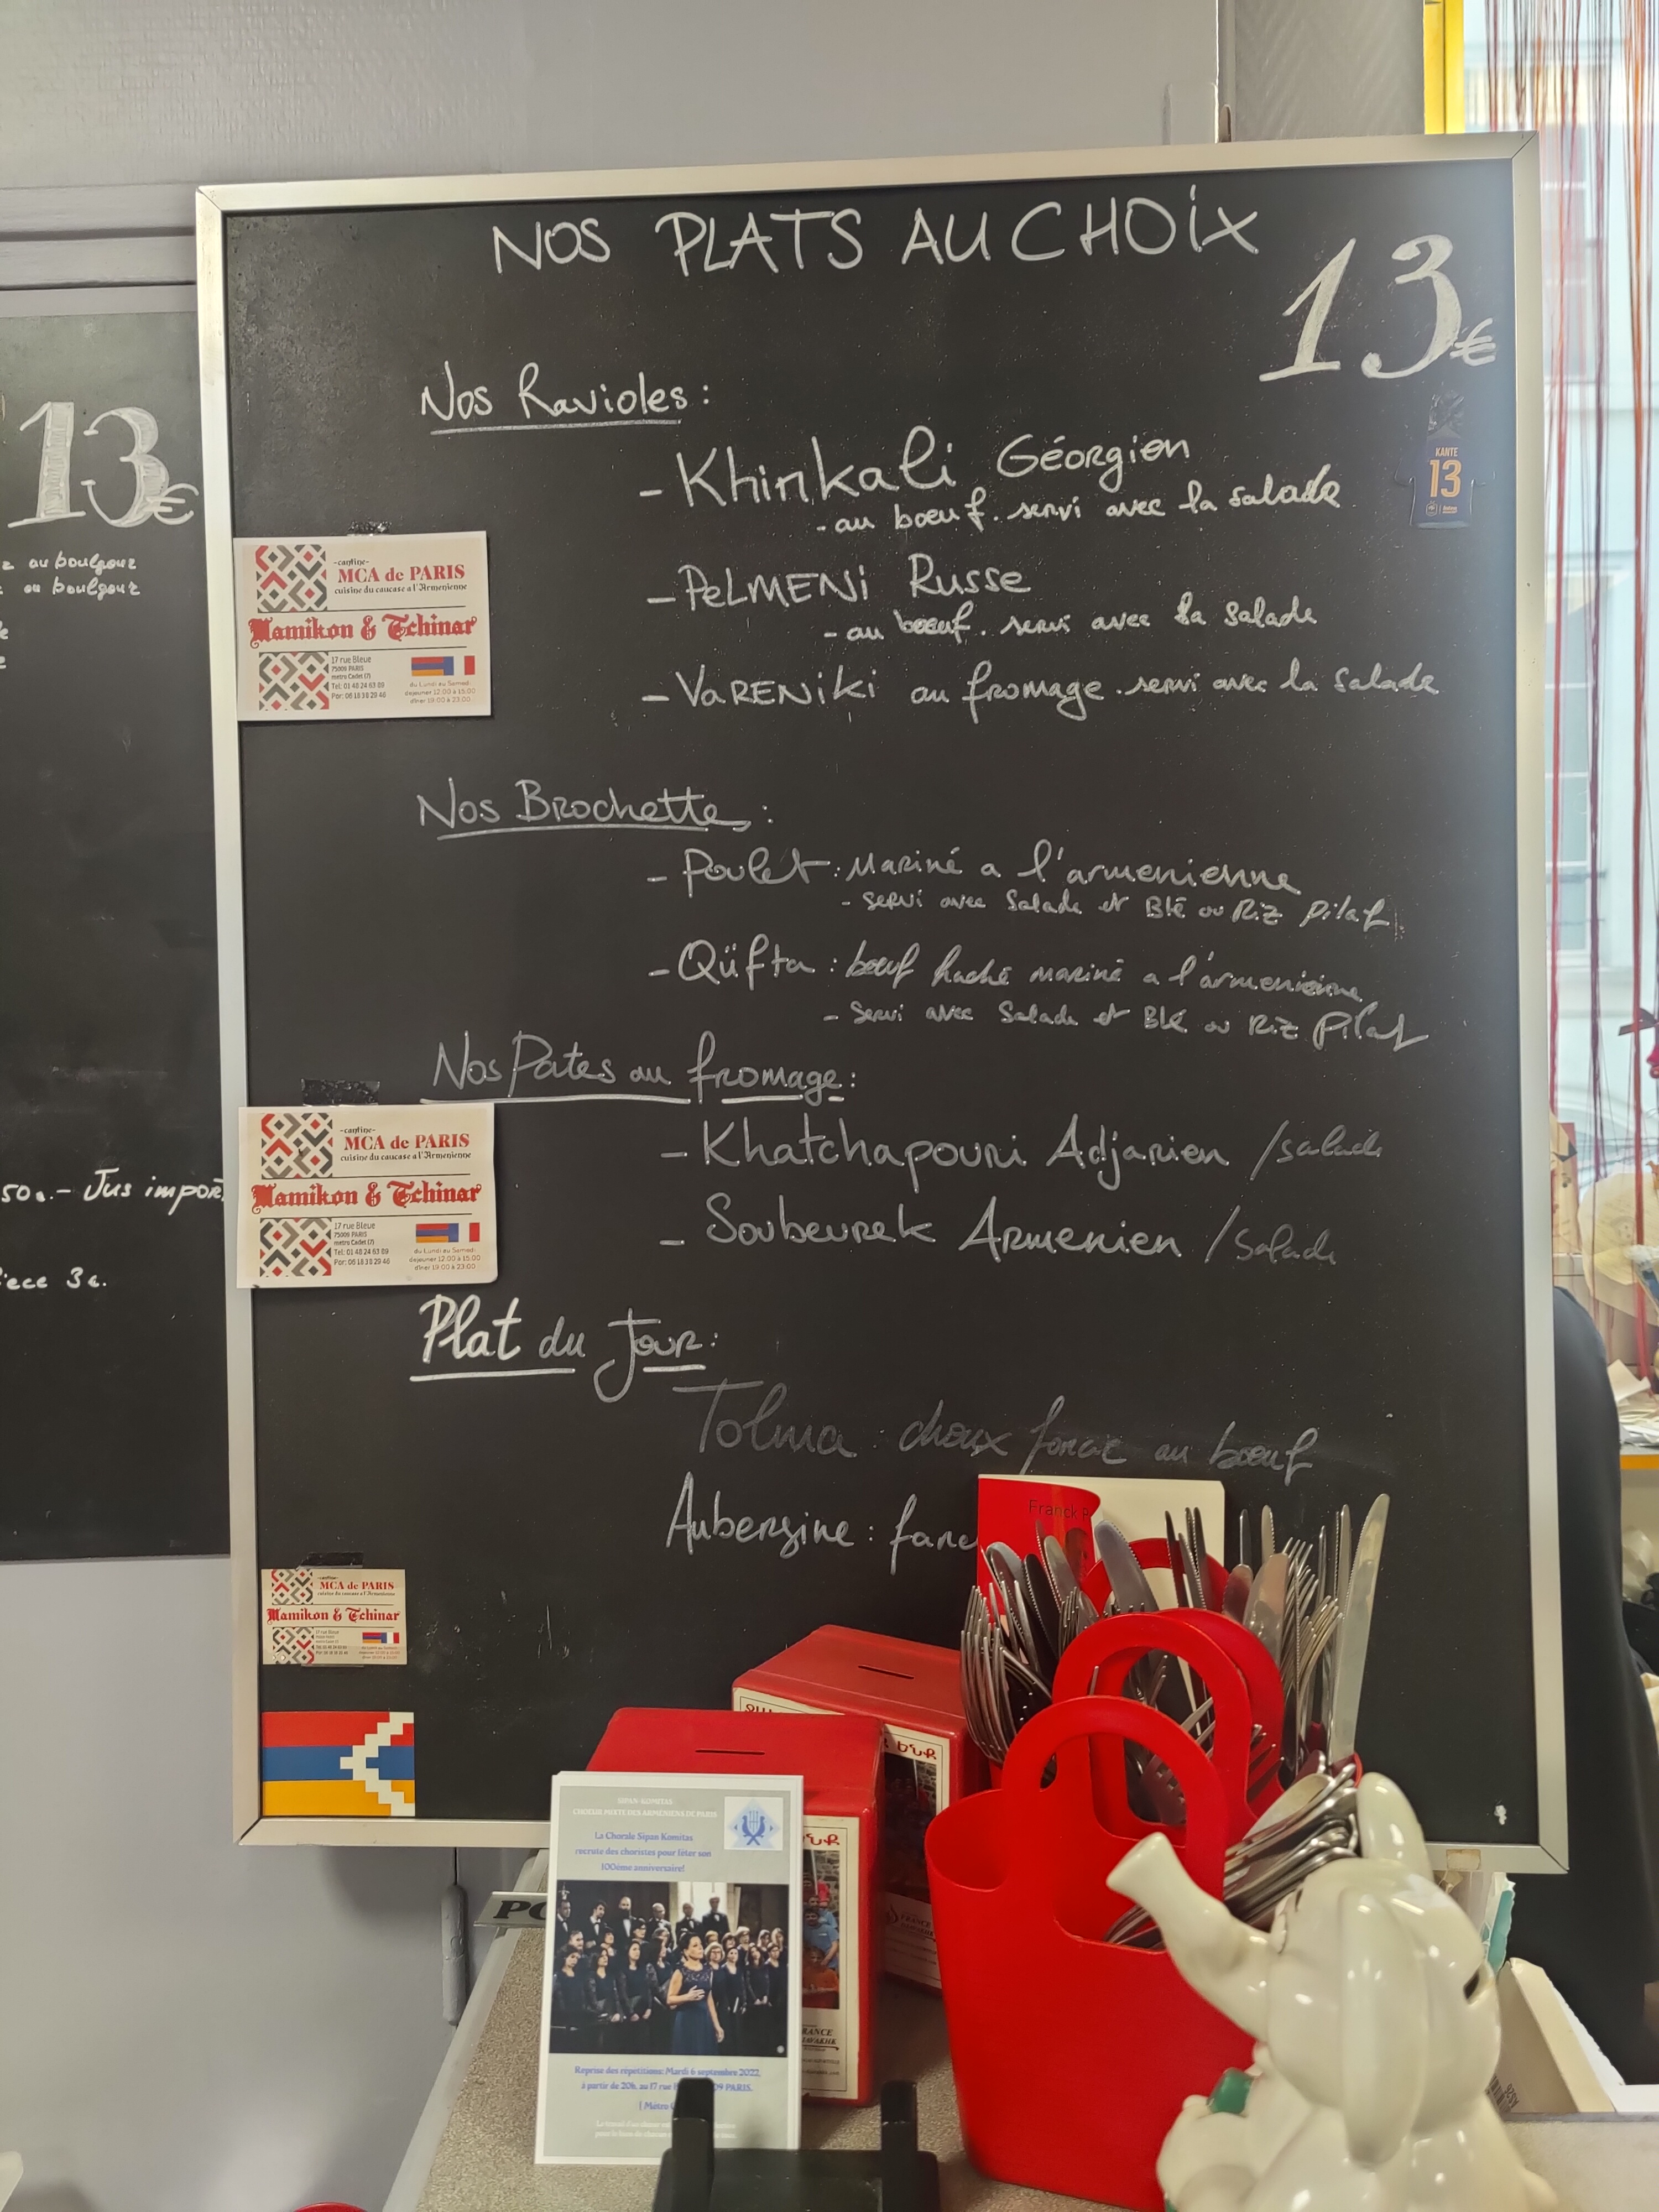 NOS PLATS AU CHOIX
13€
Nos Ravioles :
- Khinkali Géorgien
- au boeuf. servi avec la salade
- PELMENi Russe
- au boeuf. servi avec la salade
- VARENiki au fromage. servi avec la salade
Nos Brochette :
- Poulet : Mariné a l'armenienne
- servi avec Salade et Blé ou Riz pilaf
- Qüfta : boeuf haché mariné a l'armenienne
- servi avec Salade et Blé ou Riz pilaf
Nos Pates au fromage :
- Khatchapouri Adjarien / salade
- Soubeurek Armenien / salade
Plat du Jour :
Tolma : choux farcie au boeuf
Aubergine : farc
KANTE
13
13€
au boulgour
ou boulgour
50 . - Jus import
iece 3€.
-cantine-
MCA de PARIS
cuisine du caucase a l'Armenienne
Mamikon & Tchinar
17 rue Bleue
75009 PARIS
metro Cadet (7)
Tel: 01 48 24 63 89
Por: 06 18 38 29 46
du Lundi au Samedi
dejeuner 12:00 à 15:00
dîner 19:00 à 23:00
-cantine-
MCA de PARIS
cuisine du caucase a l'Armenienne
Mamikon & Tchinar
17 rue Bleue
75009 PARIS
metro Cadet (7)
Tel: 01 48 24 63 89
Por: 06 18 38 29 46
du Lundi au Samedi
dejeuner 12:00 à 15:00
dîner 19:00 à 23:00
-cantine-
MCA de PARIS
cuisine du caucase a l'Armenienne
Mamikon & Tchinar
17 rue Bleue
Franck
SIPAN-KOMITAS
CHOEUR MIXTE DES ARMÉNIENS DE PARIS
La Chorale Sipan Komitas
recrute des choristes pour fêter son
100ème anniversaire!
Reprise des répétitions: Mardi 6 septembre 2022,
à partir de 20h, au 17 rue 09 PARIS.
| Métro
FRANCE